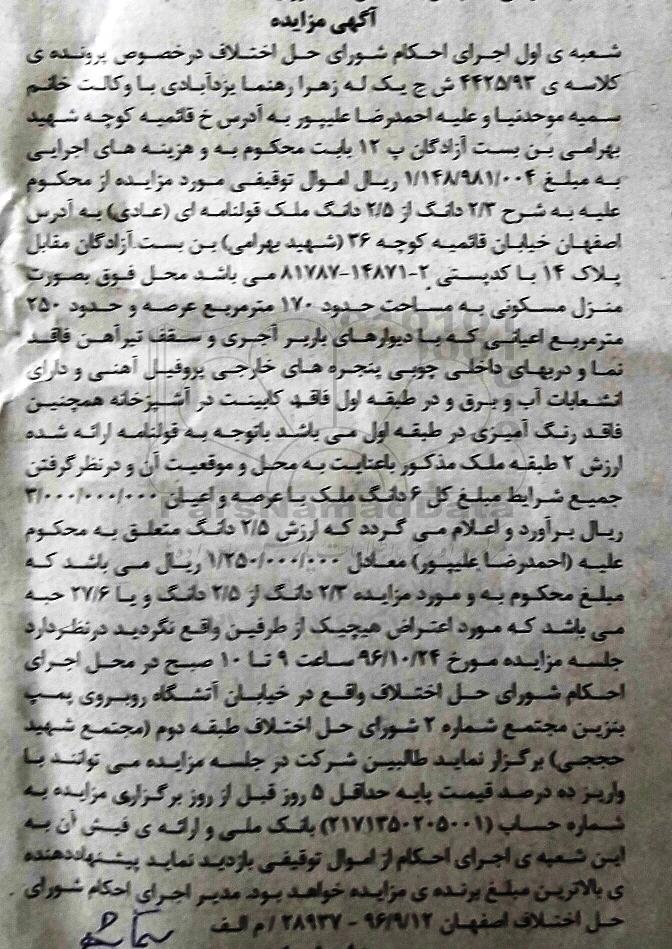 آگهی مزایده
شعبه ی اول اجرای احکام شورای حل اختلاف درخصوص پرونده ی
کلاسه ی ۴۴۲۵/۹۳ ش ح یک له زهرا رهنما یزدآبادی با وکالت خانم
سمیه موحدنیا و علیه احمدرضا علیپور به آدرس خ قائمیه کوچه شهید
بهرامی بن بست آزادگان پ ۱۲ بابت محکوم به و هزینه های اجرایی
به مبلغ ۱/۱۴۸/۹۸۱/۰۰۴ ریال اموال توقیفی مورد مزایده از محکوم
علیه به شرح ۲/۳ دانگ از ۲/۵ دانگ ملک قولنامه ای (عادی) به آدرس
اصفهان خیابان قائمیه کوچه ۳۶ (شهید بهرامی) بن بست آزادگان مقابل
پلاک ۱۴ با کدپستی ۲-۱۴۸۷۱-۸۱۷۸۷ می باشد محل فوق بصورت
منزل مسکونی به مساحت حدود ۱۷۰ مترمربع عرصه و حدود ۲۵۰
مترمربع اعیانی که با دیوارهای باربر آجری و سقف تیرآهن فاقد
نما و دربهای داخلی چوبی پنجره های خارجی پروفیل آهنی و دارای
انشعابات آب و برق و در طبقه اول فاقد کابینت در آشپزخانه همچنین
فاقد رنگ آمیزی در طبقه اول می باشد باتوجه به قولنامه ارائه شده
ارزش ۲ طبقه ملک مذکور باعنایت به محل و موقعیت آن و درنظرگرفتن
جمیع شرایط مبلغ کل ۶ دانگ ملک با عرصه و اعیان ۳/۰۰۰/۰۰۰/۰۰۰
ریال برآورد و اعلام می گردد که ارزش ۲/۵ دانگ متعلق به محکوم
علیه (احمدرضا علیپور) معادل ۱/۲۵۰/۰۰۰/۰۰۰ ریال می باشد که
مبلغ محکوم به و مورد مزایده ۲/۳ دانگ از ۲/۵ دانگ و یا ۲۷/۶ حبه
می باشد که مورد اعتراض هیچیک از طرفین واقع نگردید درنظردارد
جلسه مزایده مورخ ۹۶/۱۰/۲۴ ساعت ۹ تا ۱۰ صبح در محل اجرای
احکام شورای حل اختلاف واقع در خیابان آتشگاه روبروی پمپ
بنزین مجتمع شماره ۲ شورای حل اختلاف طبقه دوم (مجتمع شهید
حججی) برگزار نماید طالبین شرکت در جلسه مزایده می توانند با
واریز ده درصد قیمت پایه حداقل ۵ روز قبل از روز برگزاری مزایده به
شماره حساب (۲۱۷۱۳۵۰۲۰۵۰۰۱) بانک ملی و ارائه ی فیش آن به
این شعبه ی اجرای احکام از اموال توقیفی بازدید نماید پیشنهاددهنده
ی بالاترین مبلغ برنده ی مزایده خواهد بود. مدیر اجرای احکام شورای
حل اختلاف اصفهان ۹۶/۹/۱۲ - ۲۸۹۳۷ / م الف
ParsNamadData